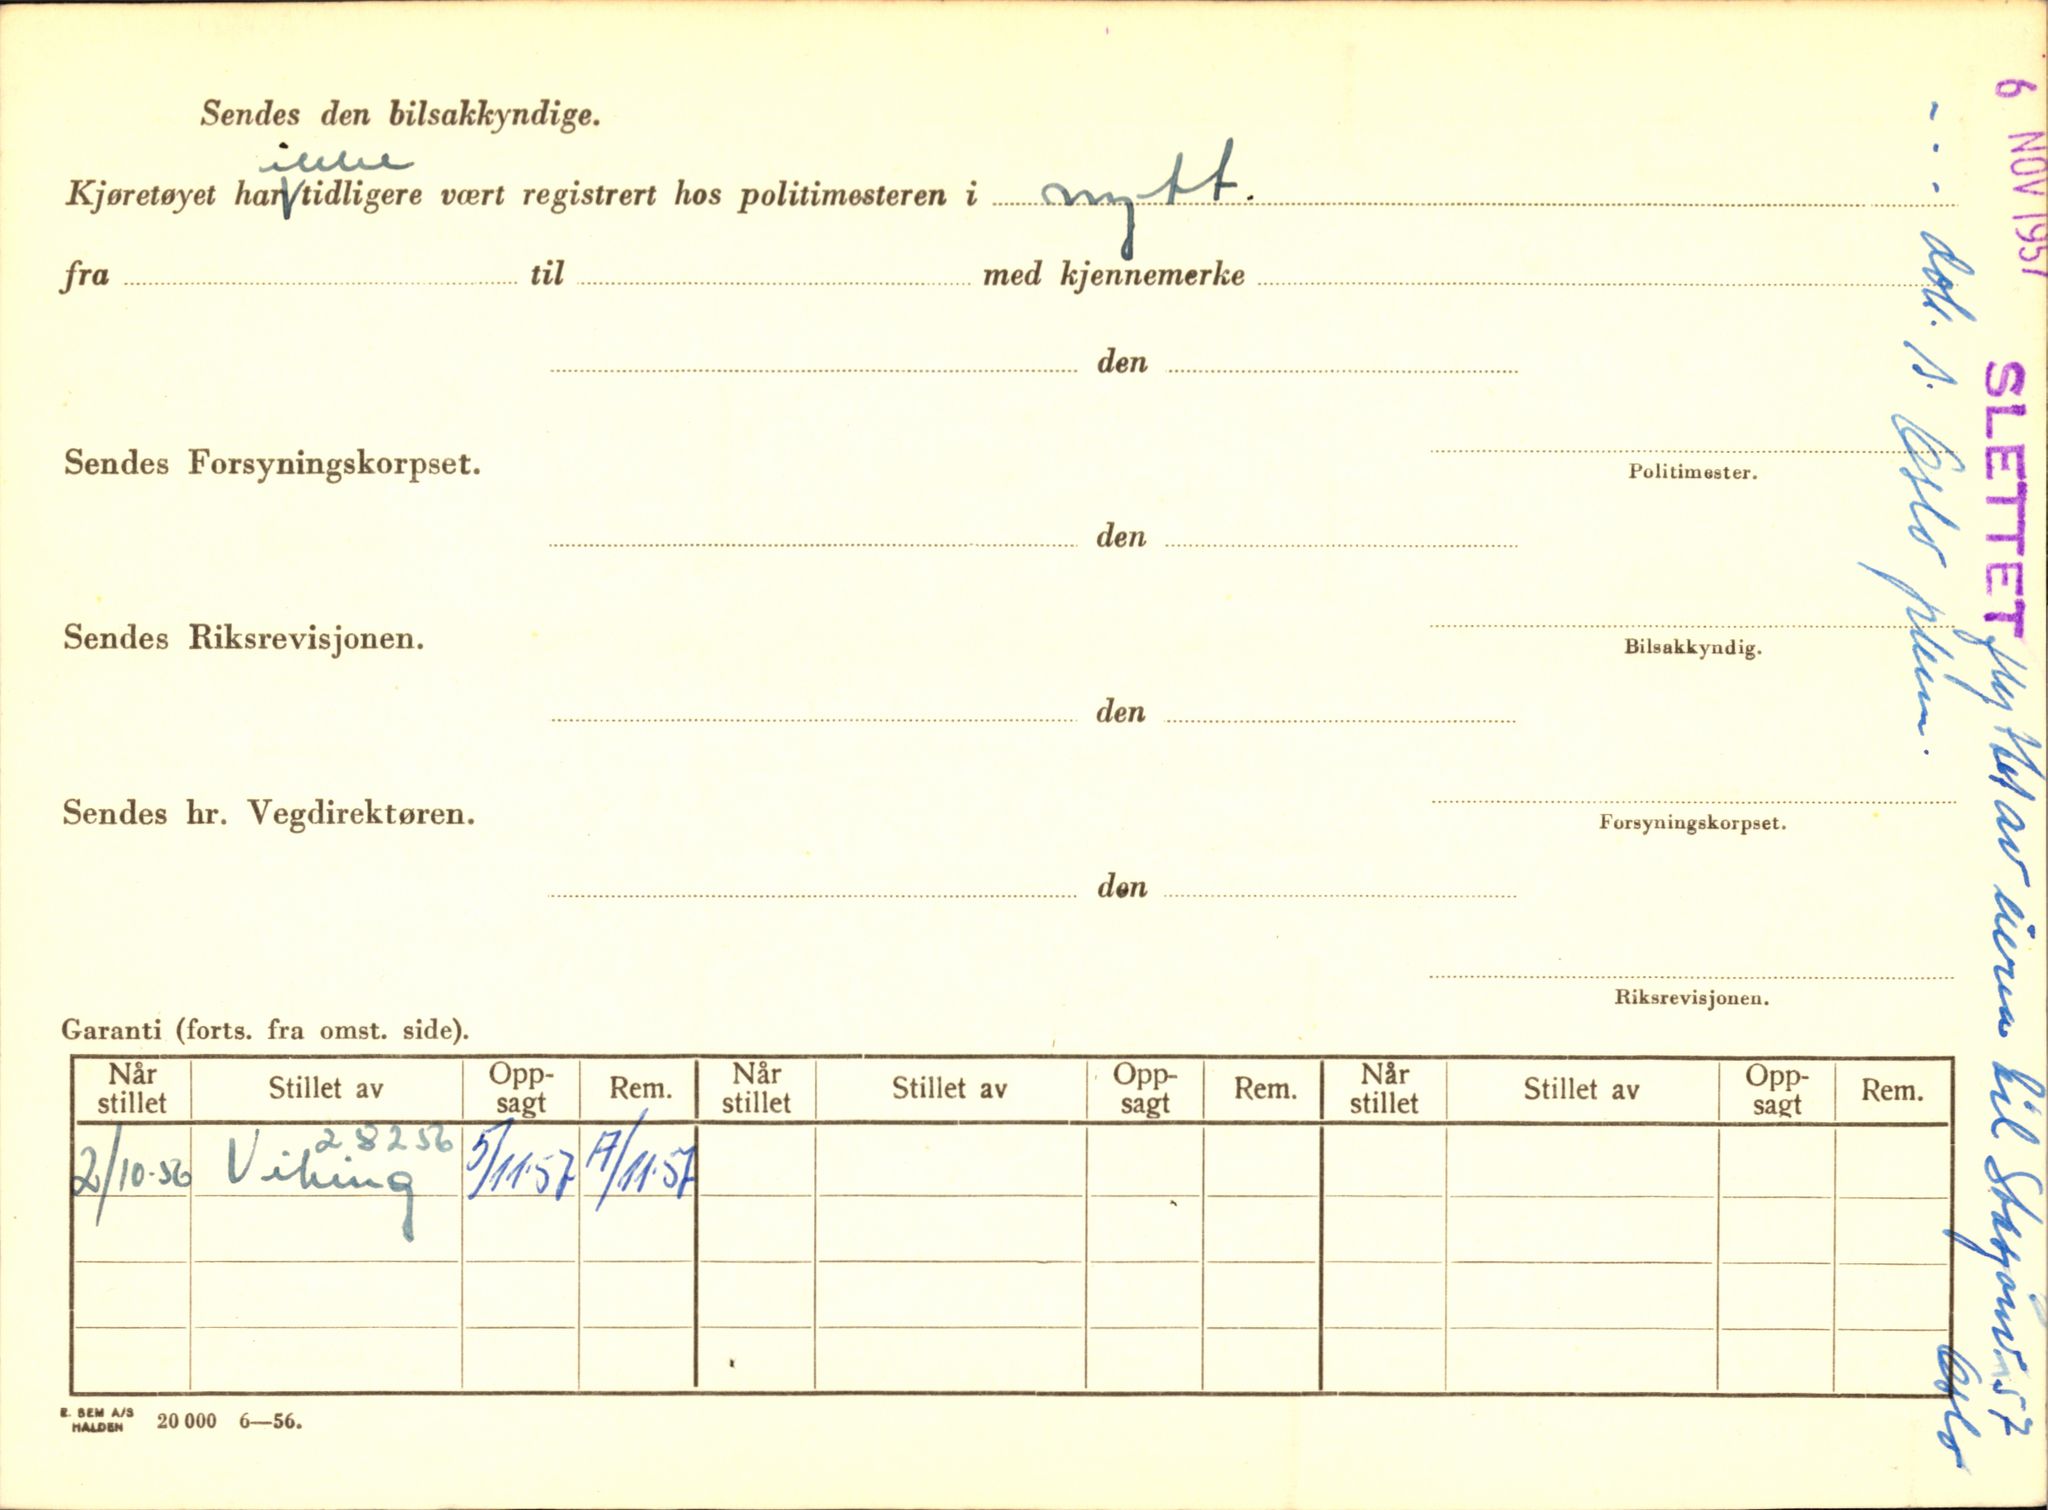 Sendes den bilsakkyndige.
ikke
Kjøretøyet har V tidligere vært registrert hos politimesteren i nytt.
fra til med kjennemerke
den
Sendes Forsyningskorpset.
Politimester.
den
Sendes Riksrevisjonen.
Bilsakkyndig.
den
Sendes hr. Vegdirektøren.
Forsyningskorpset.
den
Riksrevisjonen.
Garanti (forts. fra omst. side).
Når stillet Stillet av Opp-sagt Rem. Når stillet Stillet av Opp-sagt Rem. Når stillet Stillet av Opp-sagt Rem.
28256
2/10-56 Viking 5/11-57 7/11-57
E. SEM A/S
HALDEN 20 000 6—56.
6 NOV 1957 SLETTET flyttet av eieren til 57
Oslo
Oslo